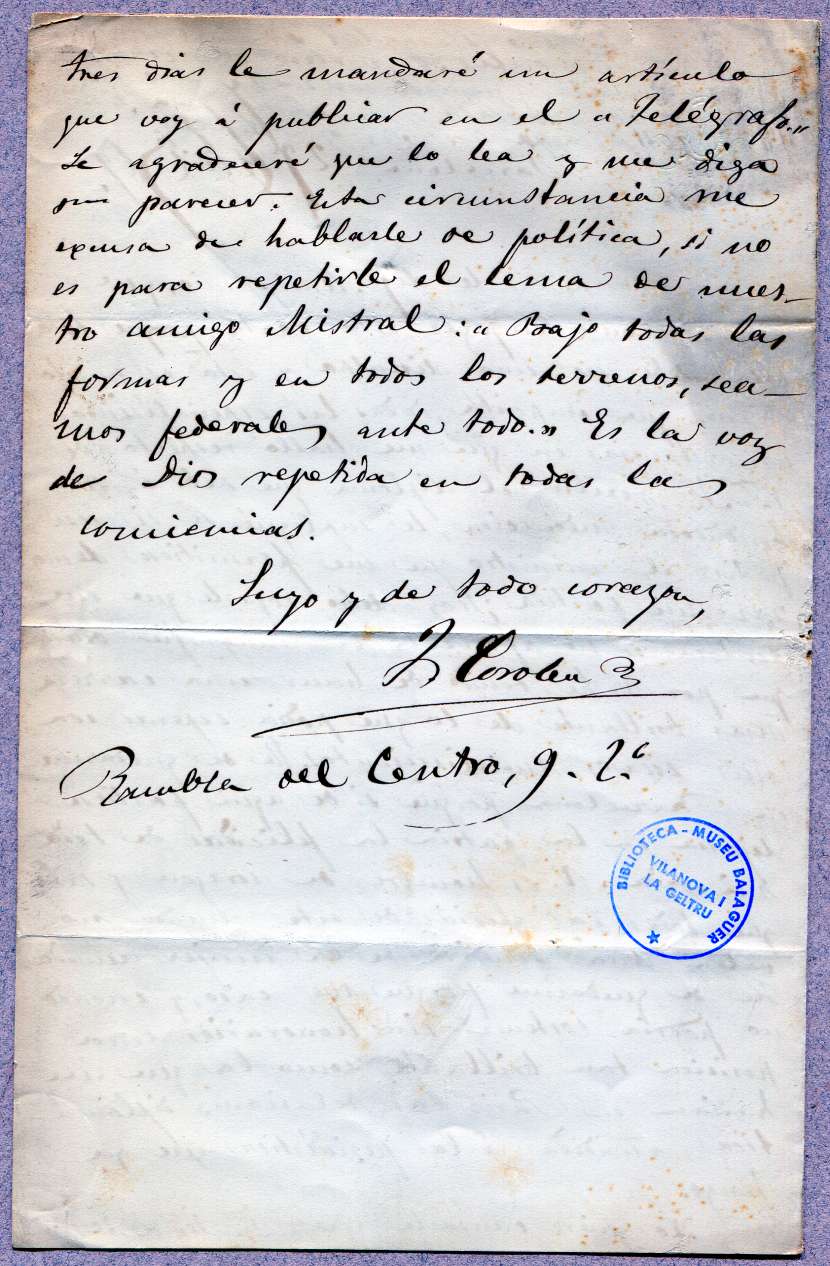 tres dias le mandaré un artículo
que voy á publicar en el « Telégrafo.»
Le agradeceré que lo lea y me diga
su parecer. Esta circunstancia me
excusa de hablarle de política, si no
es para repetirle el lema de nues-
tro amigo Mistral: « Bajo todas las
formas y en todos los terrenos, sea-
mos federales ante todo.» Es la voz
de Dios repetida en todas las
conciencias.
Suyo y de todo corazon,
J. Coroleu
Rambla del Centro, 9. 2.º
BIBLIOTECA - MUSEU BALAGUER
VILANOVA I
LA GELTRU